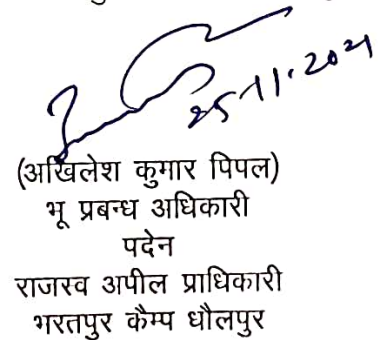 25.11.2021
(अखिलेश कुमार पिपल)
भू प्रबन्ध अधिकारी
पदेन
राजस्व अपील प्राधिकारी
भरतपुर कैम्प धौलपुर